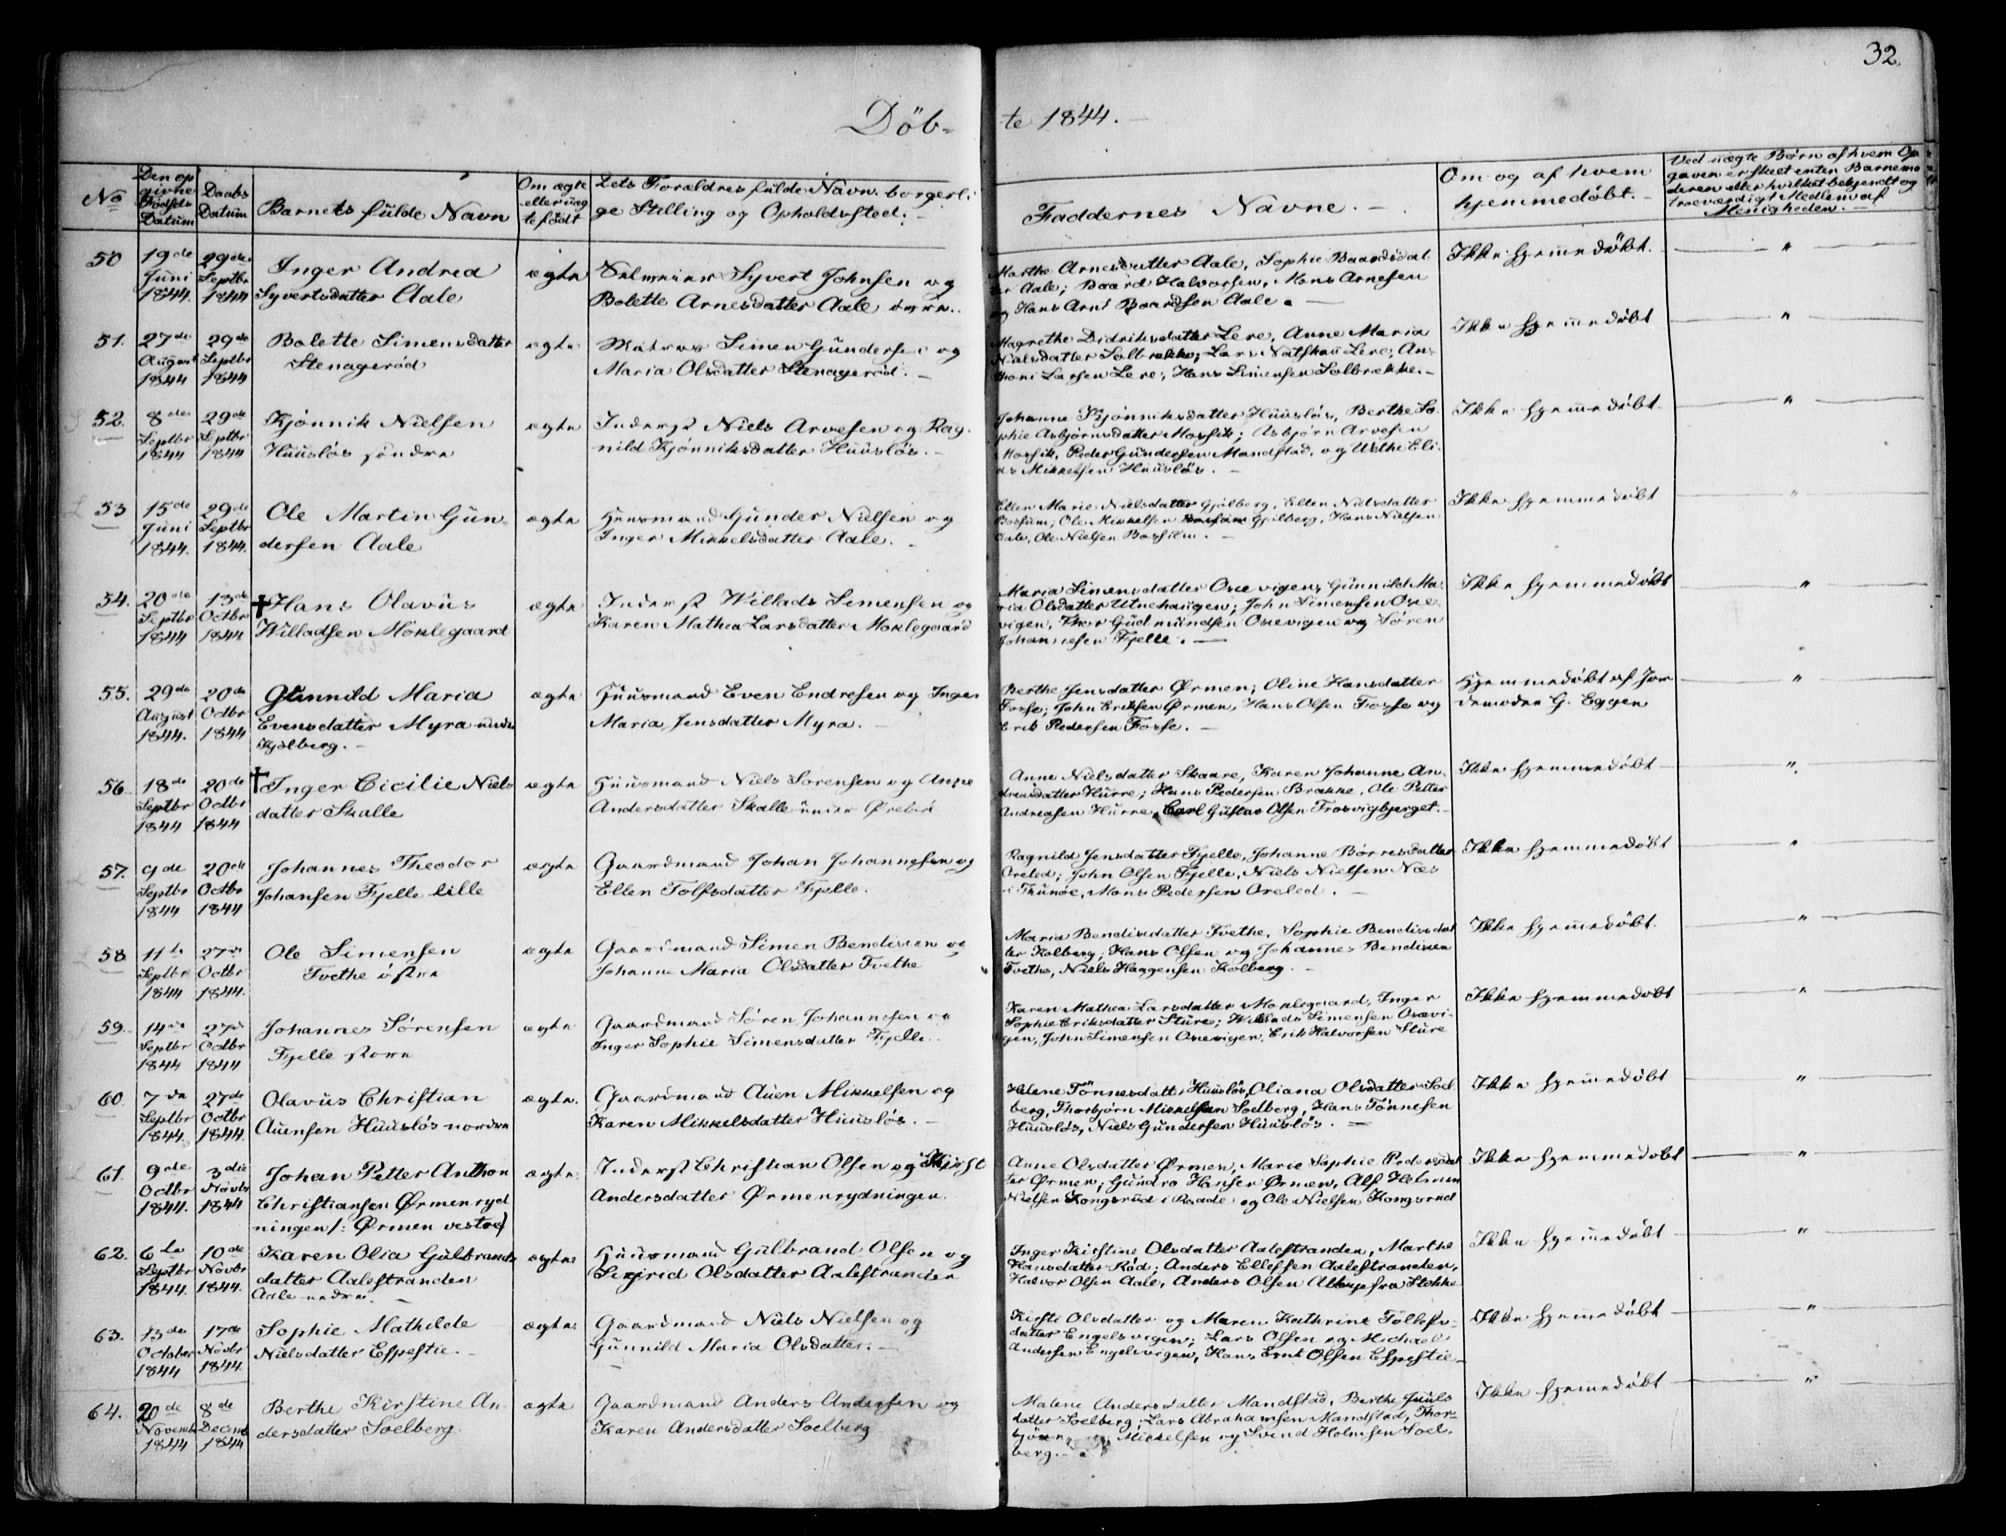 32.
Döb-
te 1844.
No
Den op
givne
Födsels
Datum
Daabs
Datum
Barnets fulde Navn
Om ægte
eller uæg
te födt
Dets Forældres fulde Navn, borgerli
ge Stilling og Opholdssted.
Faddernes Navne.
Om og af hvem
hjemmedöbt.
Ved uægte Børn af hvem Op
gaven er skeet enten Barnemo
deren eller hvilket bekjendt og
troeværdigt Medlem af
Menigheden.
50
19de
Juni
1844.
29de
Septbr
1844
Inger Andrea
Syvertsdatter Aale
ægte
Selveier Syvert Johnsen og
Bolette Arnesdatter Aale
Marthe Arnesdatter Aale, Sophie Baardsdat
ter Aale; Baard Halvorsen, Hans Arnesen
og Hans Arnt Baardsen Aale.
Ikke hjemmedöbt.
"
51.
27de
August
1844
29de
Septbr
1844
Bolette Simensdatter
Stenagerød
ægte
Matros Simen Gundersen og
Maria Olsdatter Stenagerød.
Magrethe Didriksdatter Lere, Anne Maria
Nielsdatter Solbrekke; Lars Natskou Lere, An-
thoni Larsen Lere, Hans Simensen Solbrække.
Ikke hjemmedöbt
"
52.
8de
Septbr
1844
29de
Septbr
1844
Kjönnik Nielsen
Huuslös söndre
ægte
Inderst Niels Arvesen og Rag-
nild Kjönniksdatter Huuslös.
Johanne Kjönniksdatter Huuslös, Berthe So-
phie Asbjørnsdatter Mossik; Asbjörn Arvesen
Mossik, Peder Gundersen Mandstad, og Uethe Eli-
as Mikkelsen Huuslös.
Ikke hjemmedöbt.
"
53
15de
Juni
1844.
29de
Septbr
1844.
Ole Martin Gun-
dersen Aale
ægte
Huusmand Gunder Nielsen og
Inger Mikkelsdatter Aale.
Ellen Marie Nielsdatter Gjølberg, Ellen Nielsdatter
Ole Mikkelsen Gjølberg, Hans Nielsen
Aale, Ole Nielsen
Ikke hjemmedöbt
"
54.
20de
Septbr
1844
13de
Octbr
1844
† Hans Olavus
Willadsen Moklegaard
ægte
Inderst Willads Simensen og
Karen Mathea Larsdatter Moklegaard
Maria Simensdatter Osevigen, Gunnild Ma-
ria Olsdatter Utnehaugen; John Simensen Ose-
vigen, Thor Gudmundsen Osevigen og Søren
Johannesen Fjelle.
Ikke hjemmedöbt
"
55.
29de
August
1844.
20de
Octbr
1844
Gunnild Maria
Evensdatter Myra under
Kjölberg.
ægte
Huusmand Even Endresen og Inger
Maria Jensdatter Myra.
Berthe Jensdatter Ørmen; Oline Hansdatter
Fosse; John Eriksen Ørmen, Hans Olsen Fosse og
Erik Pedersen Fosse.
Hjemmedöbt af Jor
demoder G. Eggen
"
56
18de
Septbr
1844
20de
Octbr
1844
† Inger Cicilie Niels
datter Skalle
ægte
Huusmand Niels Sørensen og Anne
Andersdatter Skalle under
Anne Nielsdatter Skaare, Karen Johanne An-
dreasdatter Hurre; Hans Pedersen Brække, Ole Petter
Andreasen Hurre, Carl Gustav Olsen Trosvigbjerget.
Ikke hjemmedöbt
"
57.
9de
Septbr
1844
20de
Octbr
1844
Johannes Theodor
Johansen Fjelle lille
ægte
Gaardmand Johan Johannesen og
Ellen Tolfsdatter Fjelle.
Ragnild Jensdatter Fjelle, Johanne Börresdatter
Oreled; John Olsen Fjelle, Niels Nielsen Næs
i Thunöe, Mons Pedersen Oreled.
Ikke hjemmedöbt
"
58
11te
Septbr
1844
27de
Octbr
1844.
Ole Simensen
Tvethe østre
ægte
Gaardmand Simen Bendixen og
Johanne Maria Olsdatter Tvethe
Maria Bendixdatter Tvethe, Sophie Bendixdat
ter Kolberg; Hans Olsen og Johannes Bendixen
Tvethe, Niels Haagensen Kolberg.
Ikke hjemmedöbt.
"
59.
14de
Septbr
1844
27de
Octbr
1844
Johannes Sörensen
Fjelle store
ægte
Gaardmand Sören Johannesen og
Inger Sophie Simensdatter Fjelle.
Karen Mathea Larsdatter Moklegaard, Inger
Sophie Eriksdatter Sture; Willads Simensen Osevi-
gen, John Simensen Osevigen, Erik Halvorsen Sture
Ikke hjemmedöbt
"
60
7de
Septbr
1844.
27de
Octbr
1844.
Olavus Christian
Auensen Huuslös nordre
ægte.
Gaardmand Auen Mikkelsen og
Karen Mikkelsdatter Huuslös.
Helene Tönnesdatter Huuslös, Oliana Olsdatter Soel-
berg, Thorbjörn Mikkelsen Soelberg, Hans Tönnesen
Huuslös, Niels Gundersen Huuslös.
Ikke hjemmedöbt
"
61.
9de
Octbr
1844.
3die
Novbr
1844
Johan Petter Anthon
Christiansen Ørmenryd
ningen /: Ørmen vestre)
ægte.
Inderst Christian Olsen og Kirsti
Andersdatter Ørmenrydningen.
Anne Olsdatter Ørmen, Marie Sophie Pedersdat
ter Ørmen; Gundro Hansen Ørmen, Alf
Nielsen Kongsrud i Raade og Ole Nielsen Kongsrud
Ikke hjemmedöbt
"
62.
6te
Septbr
1844.
10de
Novbr
1844.
Karen Olia Gulbrands
datter Aalestranden
Aale nedre.
ægte
Huusmand Gulbrand Olsen og
Sigrid Olsdatter Aalestranden
Inger Kirstine Olsdatter Aalestranden, Marthe
Hansdatter Röd; Anders Ellefsen Aalestranden,
Halvor Olsen Aale, Anders Olsen fra Stokke
Ikke hjemmedöbt
"
63.
13de
October
1844
17de
Novbr
1844.
Sophie Mathilde
Nielsdatter Espestie.
ægte
Gaardmand Niels Nielsen og
Gunnild Maria Olsdatter.
Kirsti Olsdatter og Maren Kathrine Tollefs-
datter Engelsvigen; Lars Olsen og Michael
Andersen Engelsvigen, Hans Ernt Olsen Espestie
Ikke hjemmedöbt
"
64.
20de
Novemb
1844
8de
Decemb
1844
Berthe Kirstine An-
dersdatter Soelberg.
ægte
Gaardmand Anders Andersen og
Karen Andersdatter Soelberg
Malene Andersdatter Mandstad, Berthe Juuls
datter Soelberg; Lars Abrahamsen Mandstad, Thor-
björn Mickelsen og Svend Holmsen Soel-
berg.
Ikke hjemmedöbt
"